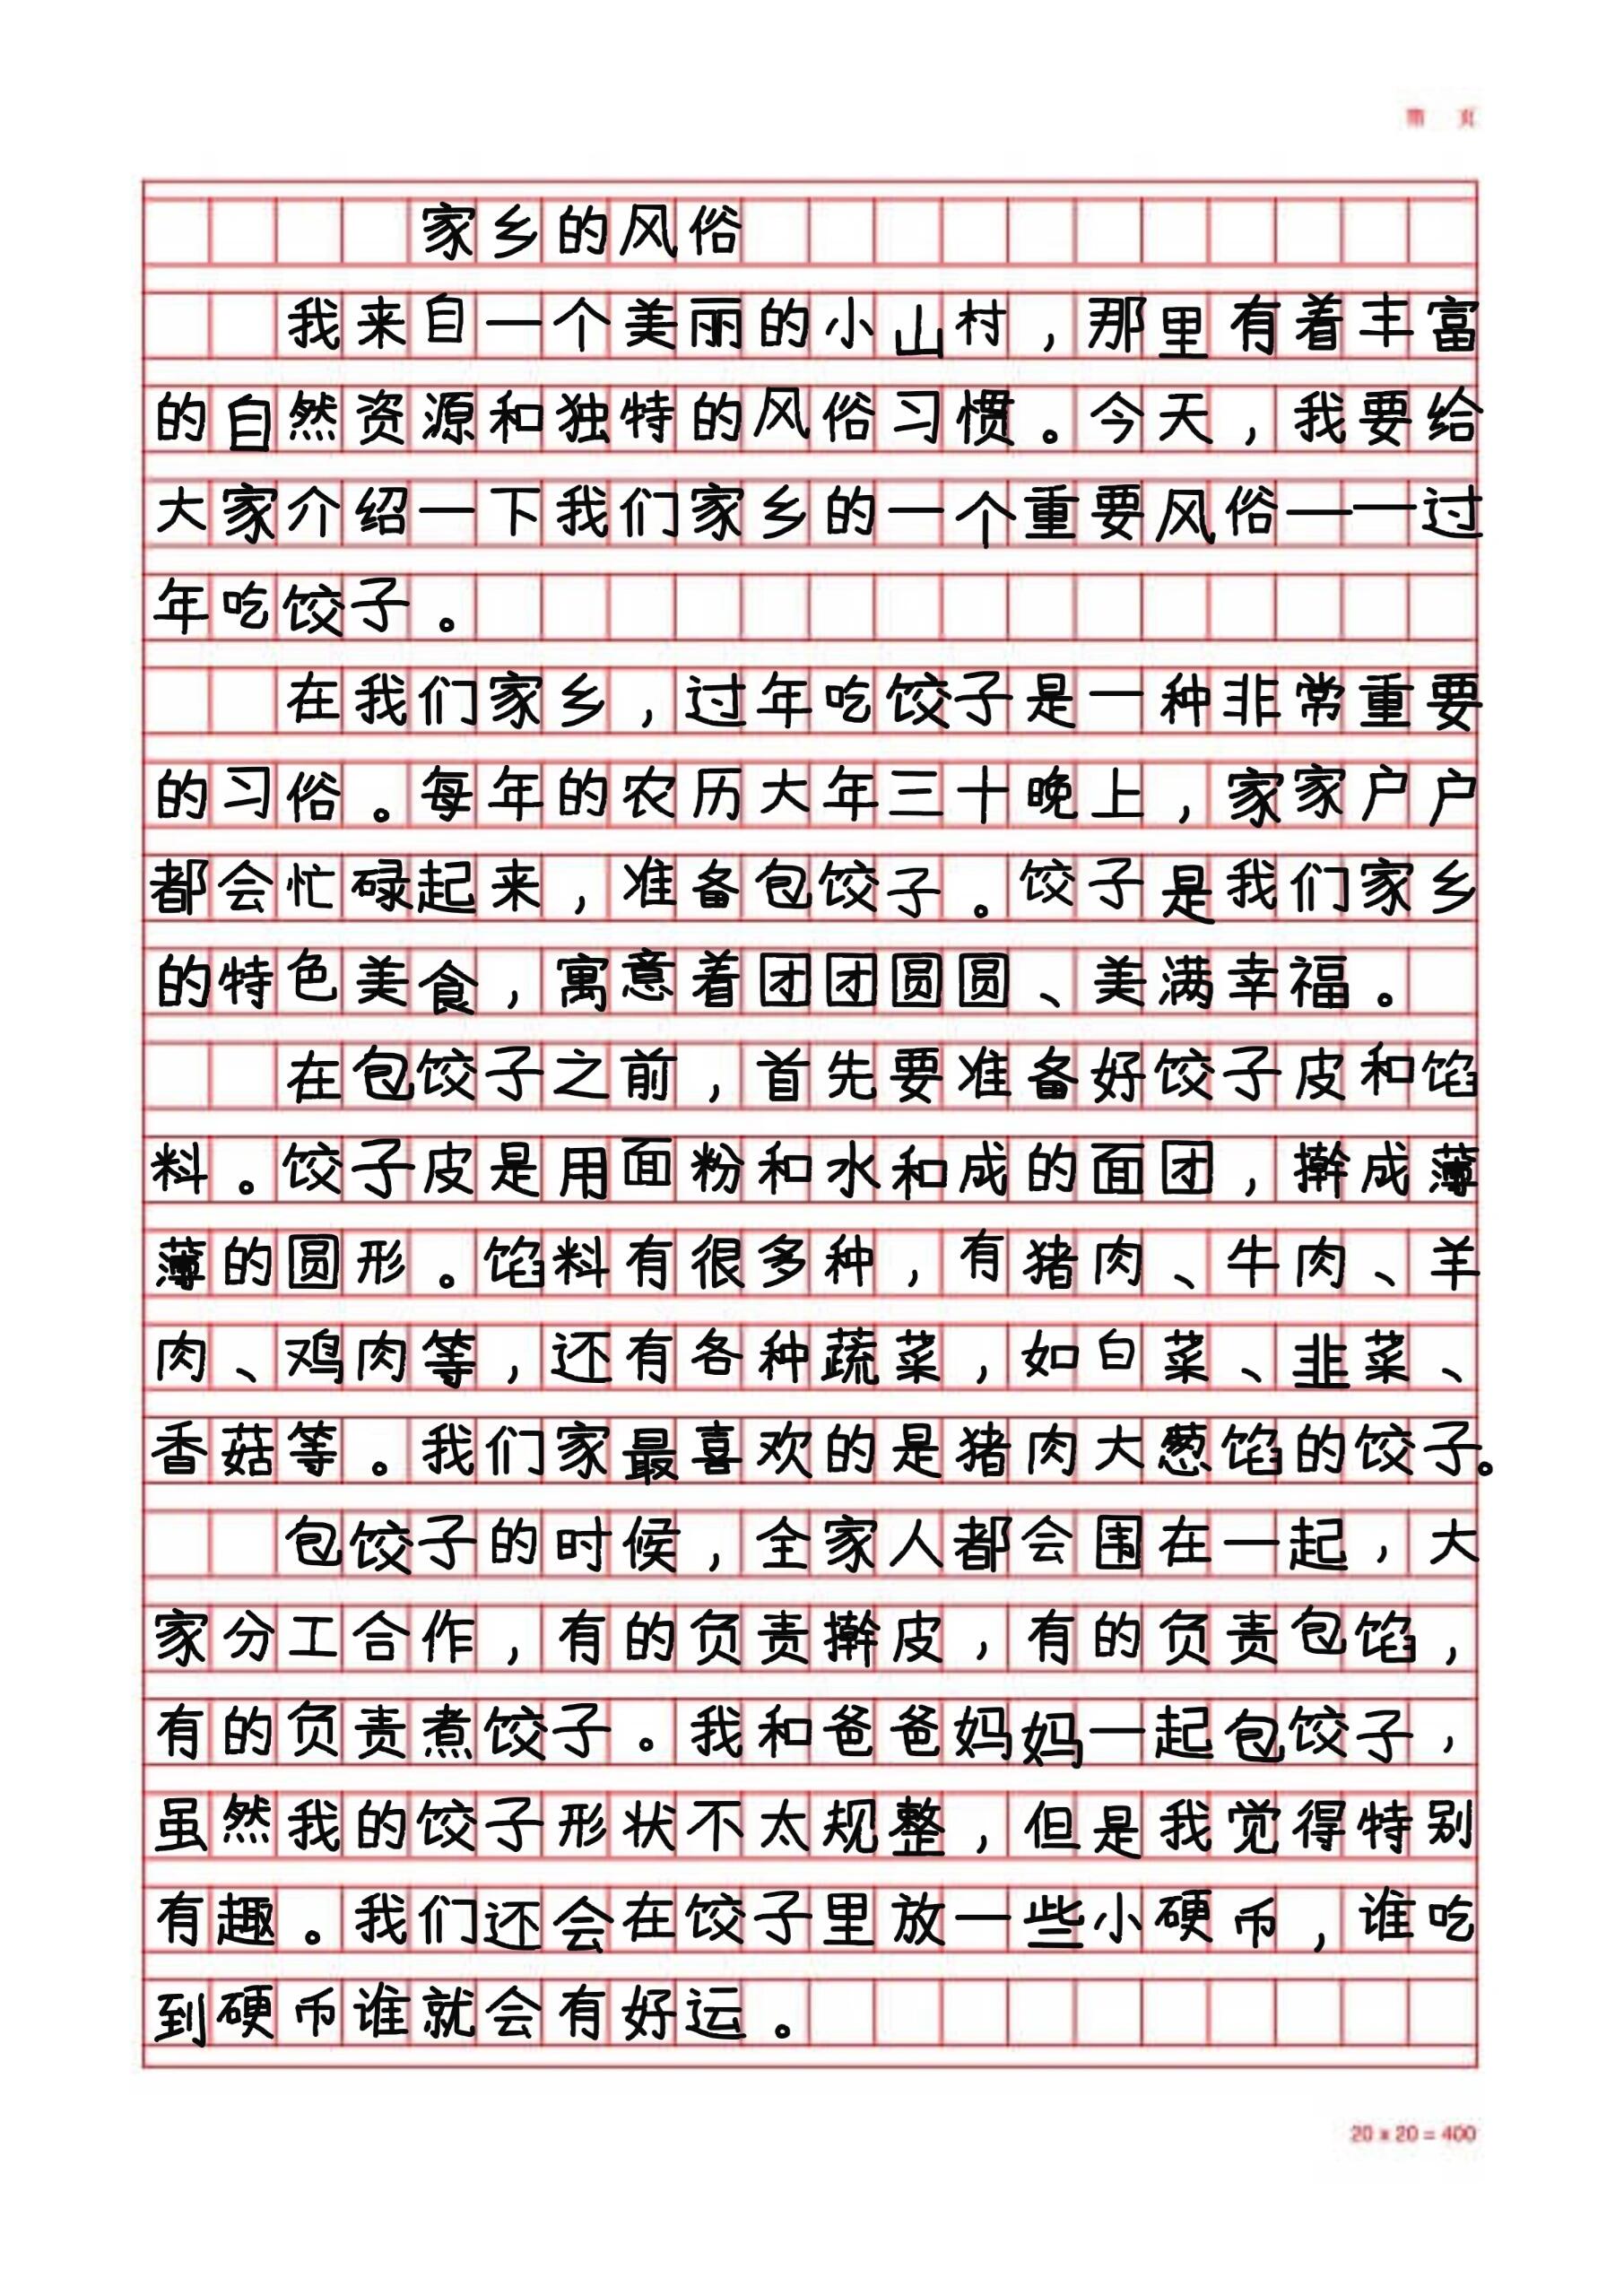 第 页
家乡的风俗
我来自一个美丽的小山村，那里有着丰富
的自然资源和独特的风俗习惯。今天，我要给
大家介绍一下我们家乡的一个重要风俗——过
年吃饺子。
在我们家乡，过年吃饺子是一种非常重要
的习俗。每年的农历大年三十晚上，家家户户
都会忙碌起来，准备包饺子。饺子是我们家乡
的特色美食，寓意着团团圆圆、美满幸福。
在包饺子之前，首先要准备好饺子皮和馅
料。饺子皮是用面粉和水和成的面团，擀成薄
薄的圆形。馅料有很多种，有猪肉、牛肉、羊
肉、鸡肉等，还有各种蔬菜，如白菜、韭菜、
香菇等。我们家最喜欢的是猪肉大葱馅的饺子。
包饺子的时候，全家人都会围在一起，大
家分工合作，有的负责擀皮，有的负责包馅，
有的负责煮饺子。我和爸爸妈妈一起包饺子，
虽然我的饺子形状不太规整，但是我觉得特别
有趣。我们还会在饺子里放一些小硬币，谁吃
到硬币谁就会有好运。
20 x 20 = 400